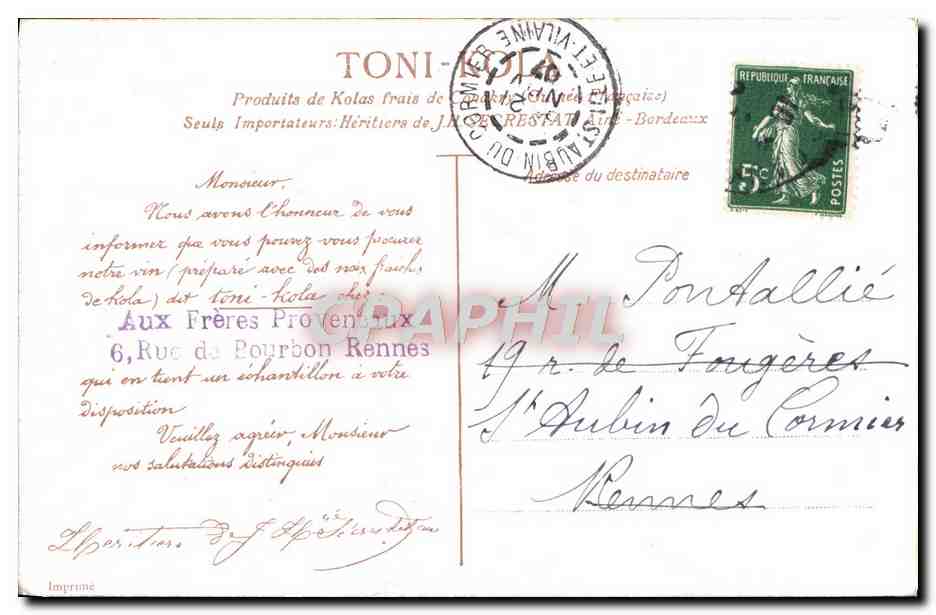 TONI-KOLA
Produits de Kolas frais de Konakry (Guinée Française)
Seuls Importateurs: Héritiers de J.H. SECRESTAT Aîné - Bordeaux
ST AUBIN DU CORMIER ILLE-ET-VILAINE
07
REPUBLIQUE FRANÇAISE
5c
POSTES
Adresse du destinataire
Monsieur,
Nous avons l'honneur de vous
informer que vous pouvez vous procurer
notre vin (préparé avec des noix fraiches
de kola) dit toni-kola chez:
Aux Frères Provençaux
6, Rue de Bourbon Rennes
qui en tient un échantillon à votre
disposition
Veuillez agréer, Monsieur
nos salutations distinguées
Héritiers de J. H.
Imprimé
M. Pontallié
19 r. de Fougères
St Aubin du Cormier
Rennes
CPAPHIL